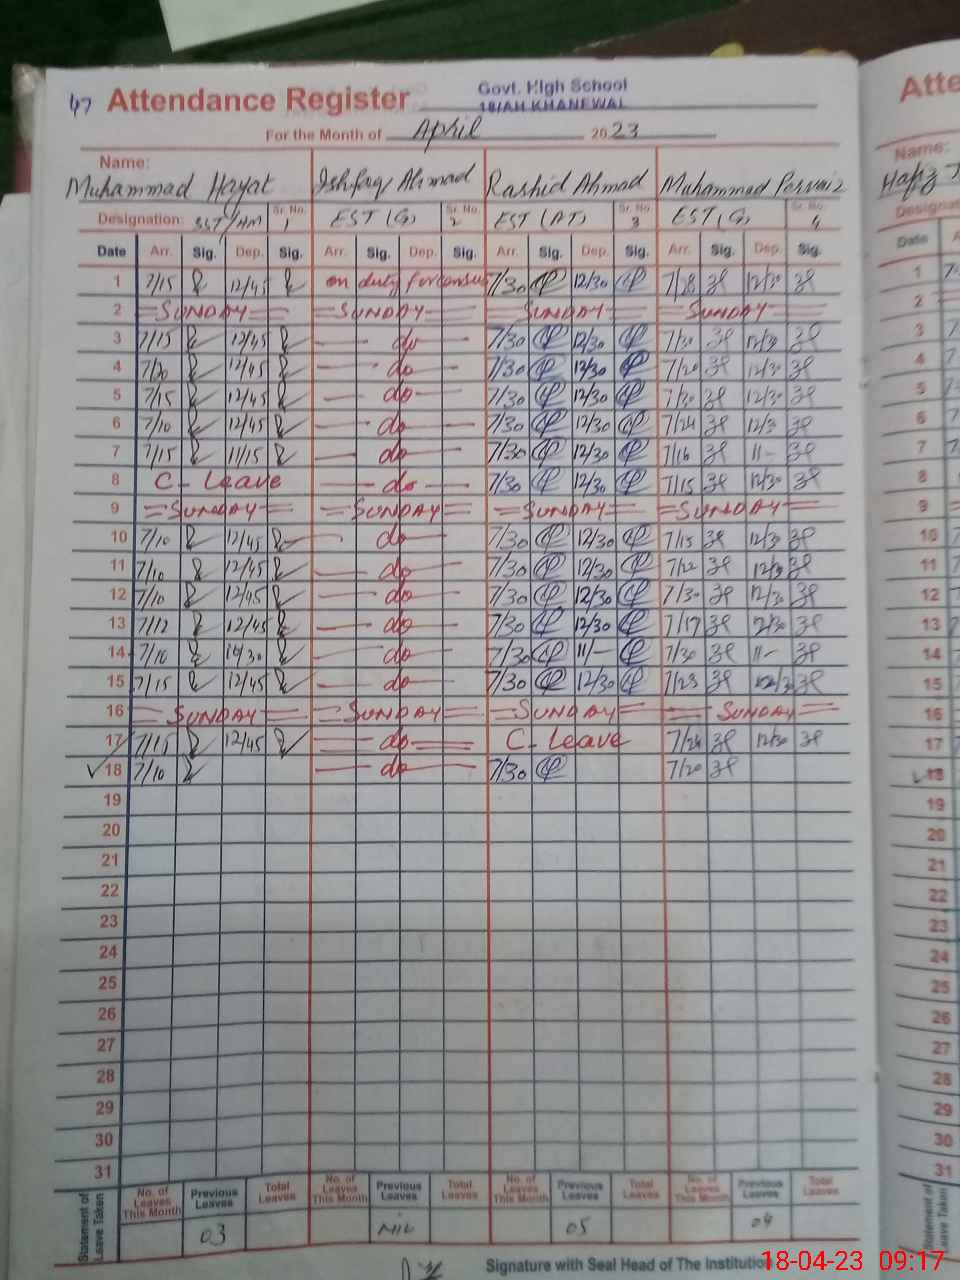 47 Attendance Register Govt. High School
18/AH KHANEWAL
For the Month of April 2023
Name:
Muhammad Hayat Ishfaq Ahmad Rashid Ahmad Muhammad Pervaiz
Designation: SST/HM Sr. No. 1 EST (G) Sr. No. 2 EST (AT) Sr. No. 3 EST (G) Sr. No. 4
Date Arr. Sig. Dep. Sig. Arr. Sig. Dep. Sig. Arr. Sig. Dep. Sig. Arr. Sig. Dep. Sig.
1 7/15 12/45 on duty for census 7/30 12/30 7/28 12/30
2 SUNDAY SUNDAY SUNDAY SUNDAY
3 7/15 12/45 do 7/30 12/30 7/30 12/30
4 7/20 12/45 do 7/30 12/30 7/20 12/30
5 7/15 12/45 do 7/30 12/30 7/30 12/30
6 7/10 12/45 do 7/30 12/30 7/24 12/3
7 7/15 11/15 do 7/30 12/30 7/16 11-
8 C- Leave do 7/30 12/30 7/15 12/30
9 SUNDAY SUNDAY SUNDAY SUNDAY
10 7/10 12/45 do 7/30 12/30 7/15 12/3
11 7/10 12/45 do 7/30 12/30 7/22 12/3
12 7/10 12/45 do 7/30 12/30 7/30 12/30
13 7/12 12/45 do 7/30 12/30 7/17
14 7/10 do 7/30 11/- 7/30 11-
15 7/15 12/45 do 7/30 12/30 7/23
16 SUNDAY SUNDAY SUNDAY SUNDAY
17 7/15 12/45 do C- Leave 7/24 12/30
18 7/10 do 7/30 7/20
19
20
21
22
23
24
25
26
27
28
29
30
31
Statement of Leave Taken No. of Leaves This Month Previous Leaves Total Leaves No. of Leaves This Month Previous Leaves Total Leaves No. of Leaves This Month Previous Leaves Total Leaves No. of Leaves This Month Previous Leaves Total Leaves
03 NIL 05 04
Signature with Seal Head of The Institution
18-04-23 09:17
Atte
Name:
Hafiz
Designa
Date A
1
2
3
4
5
6
7
8
9
10
11
12
13
14
15
16
17
18
19
20
21
22
23
24
25
26
27
28
29
30
31
Statement of Leave Taken